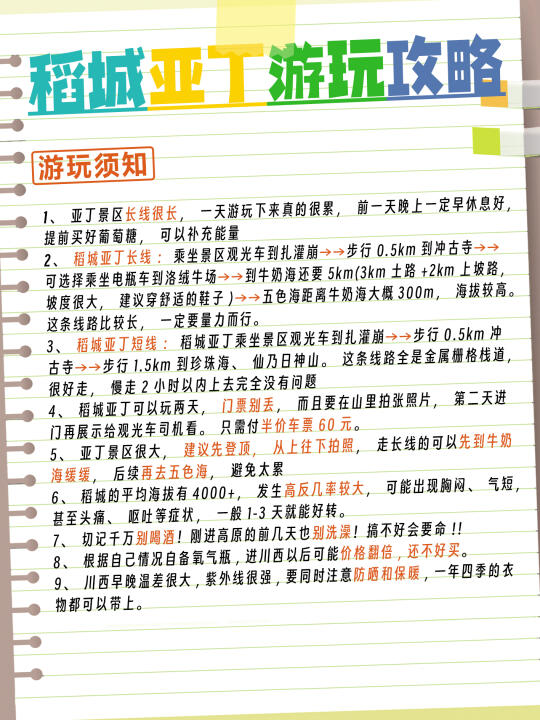 稻城亚丁游玩攻略
游玩须知
1、 亚丁景区长线很长， 一天游玩下来真的很累， 前一天晚上一定早休息好，
提前买好葡萄糖， 可以补充能量
2、 稻城亚丁长线： 乘坐景区观光车到扎灌崩→→步行 0.5km 到冲古寺→→
可选择乘坐电瓶车到洛绒牛场→→到牛奶海还要 5km(3km 土路 +2km 上坡路,
坡度很大， 建议穿舒适的鞋子 )→→五色海距离牛奶海大概 300m， 海拔较高。
这条线路比较长， 一定要量力而行。
3、 稻城亚丁短线： 稻城亚丁乘坐景区观光车到扎灌崩→→步行 0.5km 冲
古寺→→步行 1.5km 到珍珠海、 仙乃日神山。 这条线路全是金属栅格栈道，
很好走， 慢走 2 小时以内上去完全没有问题
4、 稻城亚丁可以玩两天， 门票别丢， 而且要在山里拍张照片， 第二天进
门再展示给观光车司机看。 只需付半价车票 60 元。
5、 亚丁景区很大， 建议先登顶， 从上往下拍照， 走长线的可以先到牛奶
海缓缓， 后续再去五色海， 避免太累
6、 稻城的平均海拔有 4000+， 发生高反几率较大， 可能出现胸闷、 气短，
甚至头痛、 呕吐等症状， 一般 1-3 天就能好转。
7、 切记千万别喝酒！刚进高原的前几天也别洗澡！搞不好会要命 !!
8、 根据自己情况自备氧气瓶 , 进川西以后可能价格翻倍 , 还不好买。
9、 川西早晚温差很大 , 紫外线很强 , 要同时注意防晒和保暖 , 一年四季的衣
物都可以带上。